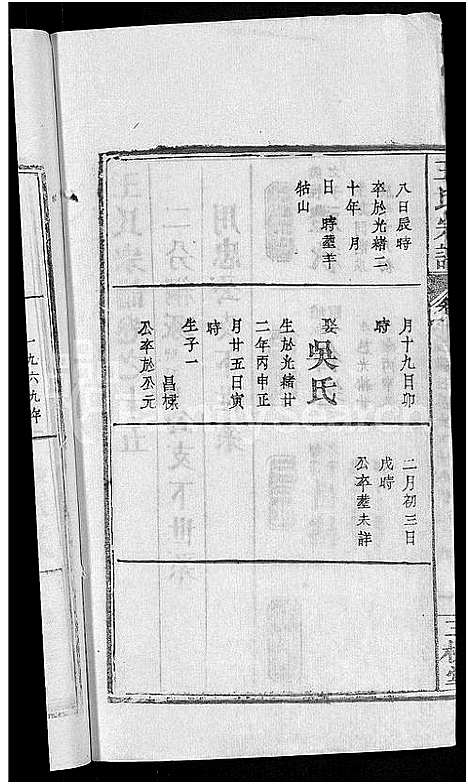 王氏宗譜
八日辰時
卒於光緒二
十年 月
日 時塟羊
牯山
月十九日卯
時
娶吳氏
生於光緒廿
二年丙申正
月廿五日寅
時
生子一
昌樑
公卒於公元
二月初三日
戌時
公卒塟未詳
三槐堂
一九六九年